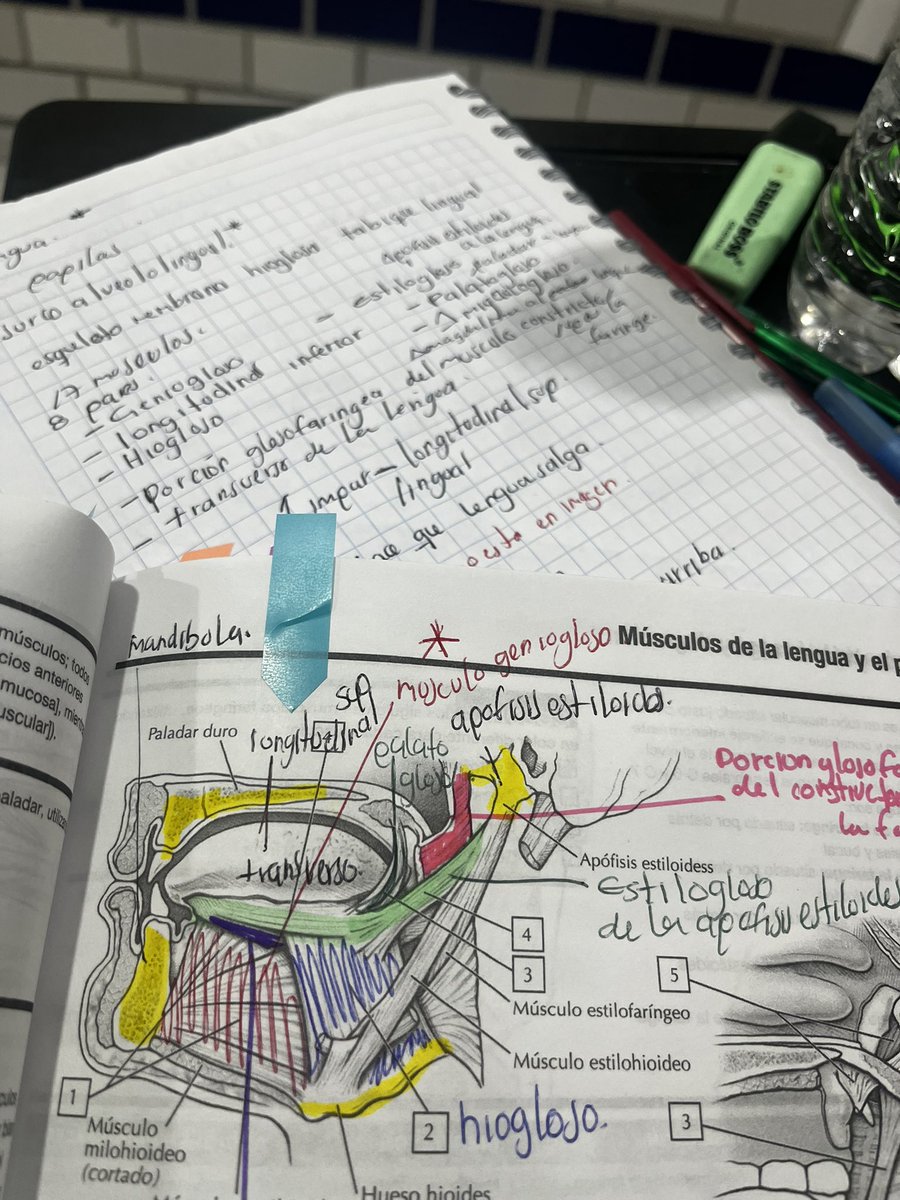 papilas
surco alveolo lingual. *
esqueleto membrana hiogloso tabique lingual
17 musculos.
8 pares.
- Geniogloso
- longitudinal inferior
- Hiogloso
- estilogloso
a la lengua
- Palatogloso
- Amigdalogloso
- porcion glosofaringea del musculo constrictor
faringe.
- transverso de la lengua.
1 impar - longitudinal sup.
lingual
que lengua salga
en imagen
arriba.
STABILO BOSS
músculos; todos
cios anteriores
mucosa], mien
uscular]).
aladar, utiliza
mandibola.
* musculo geniogloso
Músculos de la lengua y el p
Paladar duro
longitudinal
sup
palato
gloso
apofisis estiloides.
Porcion glosofa
del constrictor
la fa
transverso.
Apófisis estiloidess
Estilogloso
de la apofisis estiloides
4
3
5
Músculo estilofaríngeo
Músculo estilohioideo
1
Músculo
milohioideo
(cortado)
2 hiogloso.
3
Hueso hioides